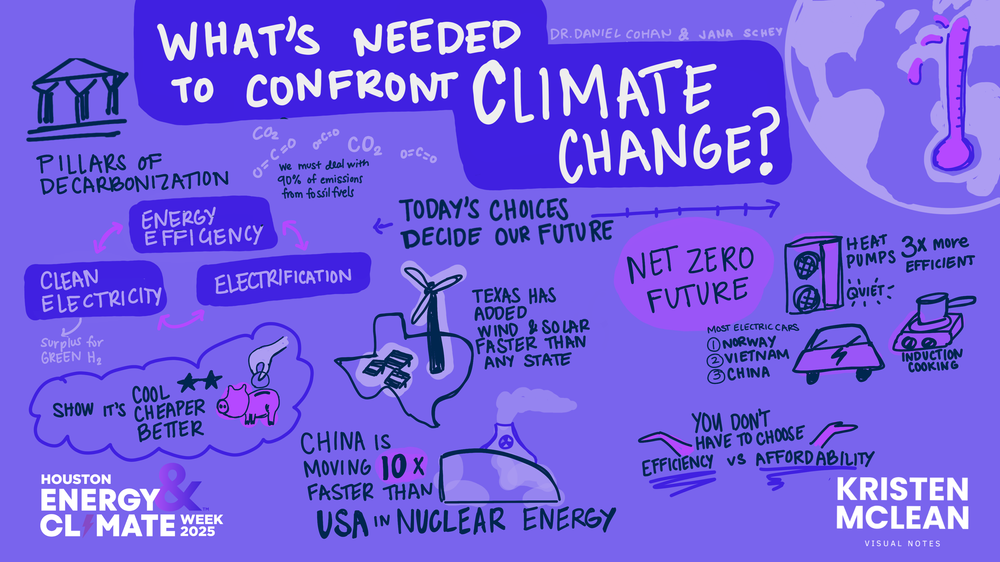 WHAT'S NEEDED
TO CONFRONT CLIMATE
CHANGE?
DR. DANIEL COHAN & JANA SCHEY
PILLARS OF
DECARBONIZATION
CO2
O=C=O
O=C=O
CO2
O=C=O
We must deal with
90% of emissions
from fossil fuels
ENERGY
EFFICENCY
CLEAN
ELECTRICITY
ELECTRIFICATION
Surplus for
GREEN H2
SHOW IT'S COOL
CHEAPER
BETTER
TODAY'S CHOICES
DECIDE OUR FUTURE
TEXAS HAS
ADDED
WIND & SOLAR
FASTER THAN
ANY STATE
CHINA IS
MOVING 10 X
FASTER THAN
USA IN NUCLEAR ENERGY
NET ZERO
FUTURE
HEAT
PUMPS
3X more
EFFICIENT
QUIET
MOST ELECTRIC CARS
1 NORWAY
2 VIETNAM
3 CHINA
INDUCTION
COOKING
YOU DON'T
HAVE TO CHOOSE
EFFICIENCY VS AFFORDABILITY
HOUSTON
ENERGY &
CLIMATE WEEK
2025
KRISTEN
MCLEAN
VISUAL NOTES